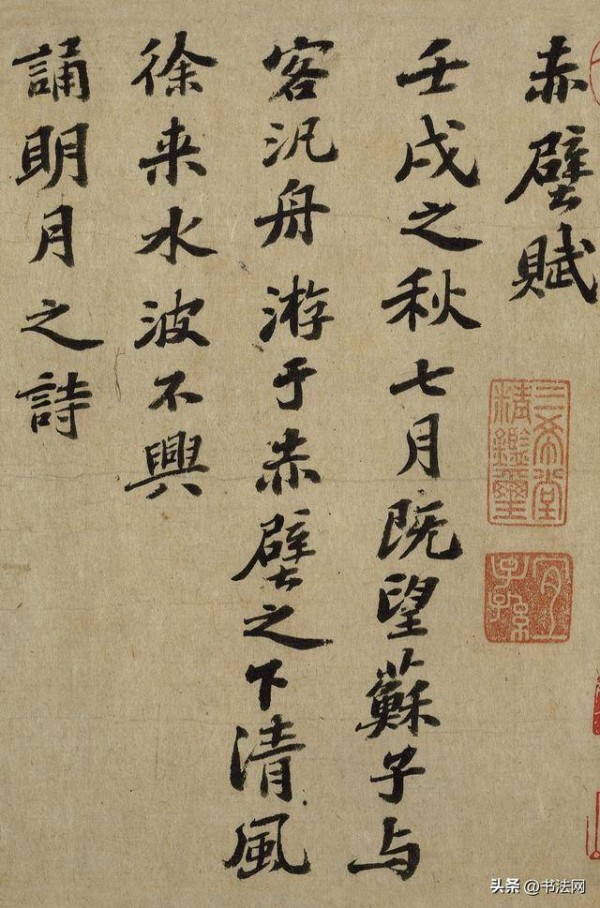 赤壁賦
壬戌之秋七月既望蘇子与
客汎舟游于赤壁之下清風
徐来水波不興
誦明月之詩
三希堂精鑑璽
宜子孫
头条 @书法网